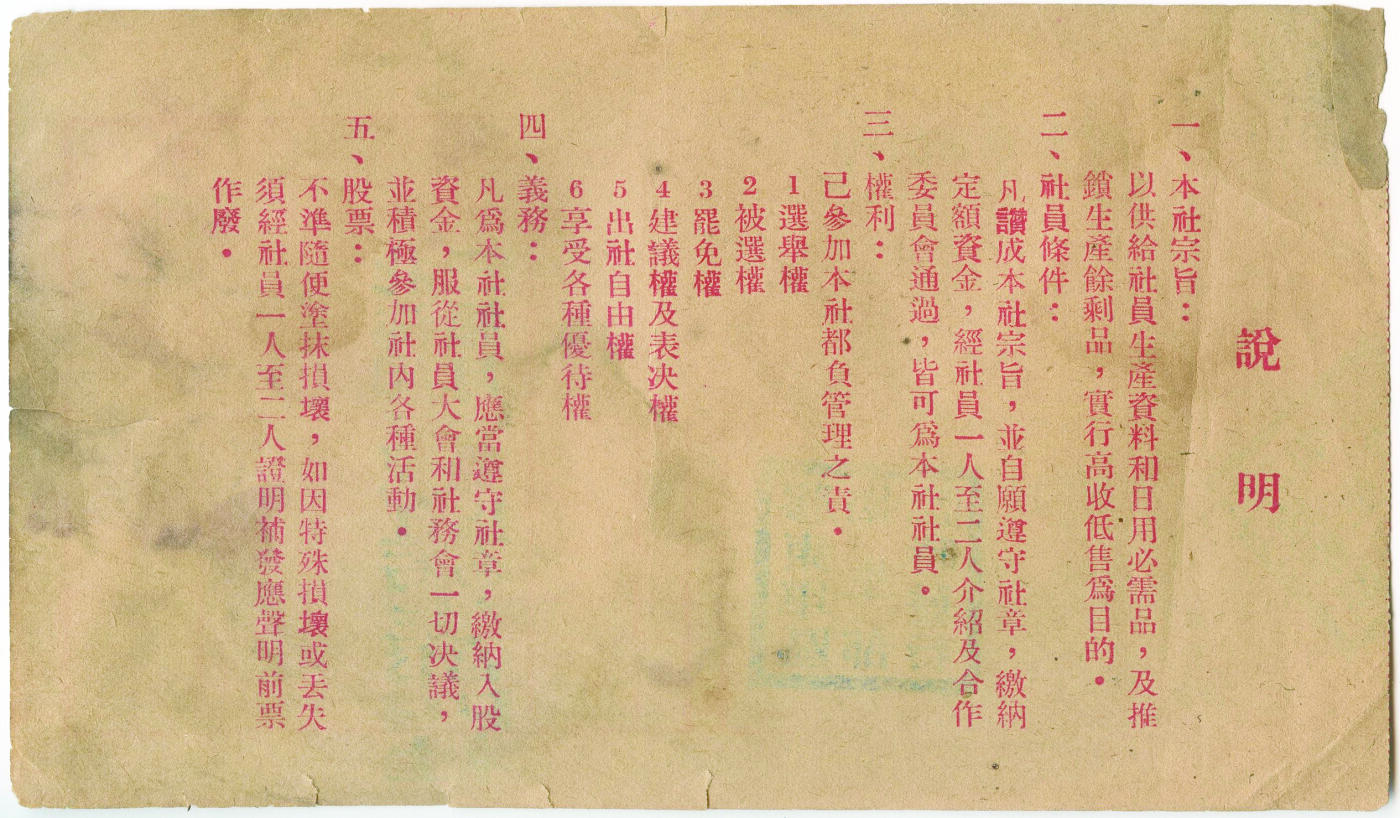 說明
一、本社宗旨：
以供給社員生產資料和日用必需品，及推
鎖生產餘剩品，實行高收低售爲目的．
二、社員條件：
凡讚成本社宗旨，並自願遵守社章，繳納
定額資金，經社員一人至二人介紹及合作
委員會通過，皆可爲本社社員．
三、權利：
己參加本社都負管理之責．
1選舉權
2被選權
3罷免權
4建議權及表决權
5出社自由權
6享受各種優待權
四、義務：
凡爲本社社員，應當遵守社章，繳納入股
資金，服從社員大會和社務會一切决議，
並積極參加社內各種活動．
五、股票：
不準隨便塗抹損壞，如因特殊損壞或丟失
須經社員一人至二人證明補發應聲明前票
作廢．